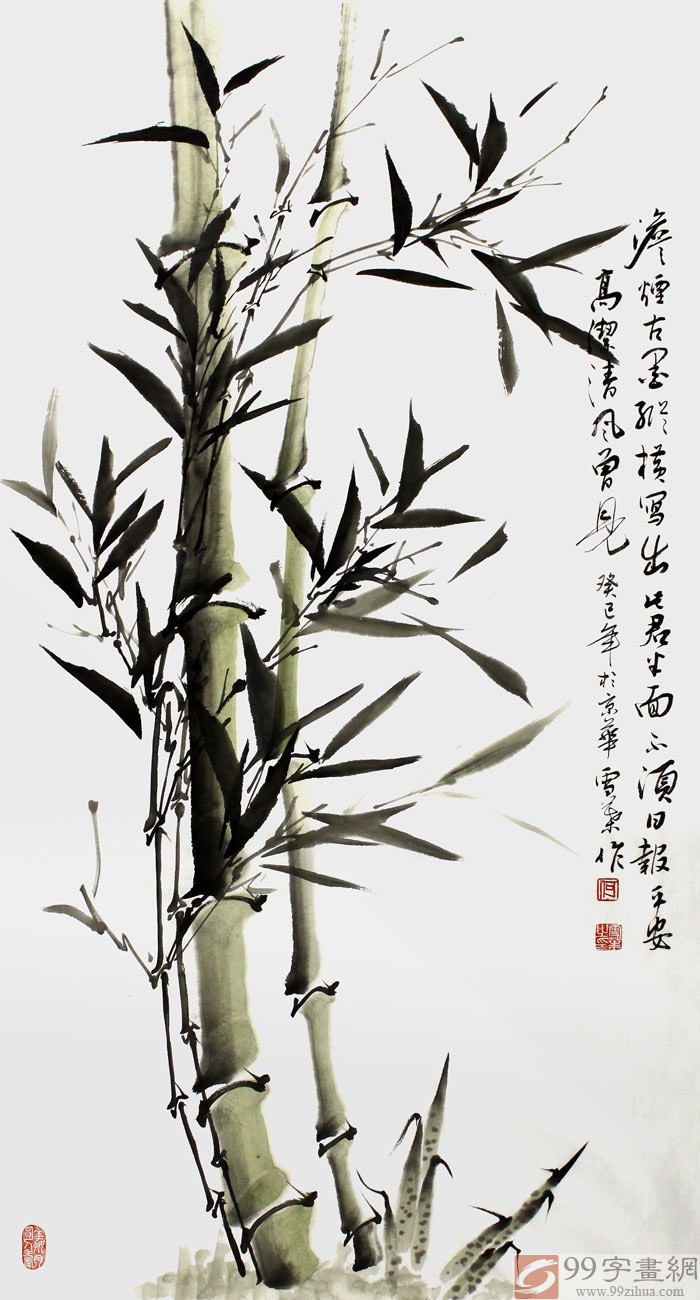 澹煙古墨縱橫寫出此君半面不須日報平安
高潔清風曾見 癸巳年於京華雪葉作
99字畫網
www.99zihua.com